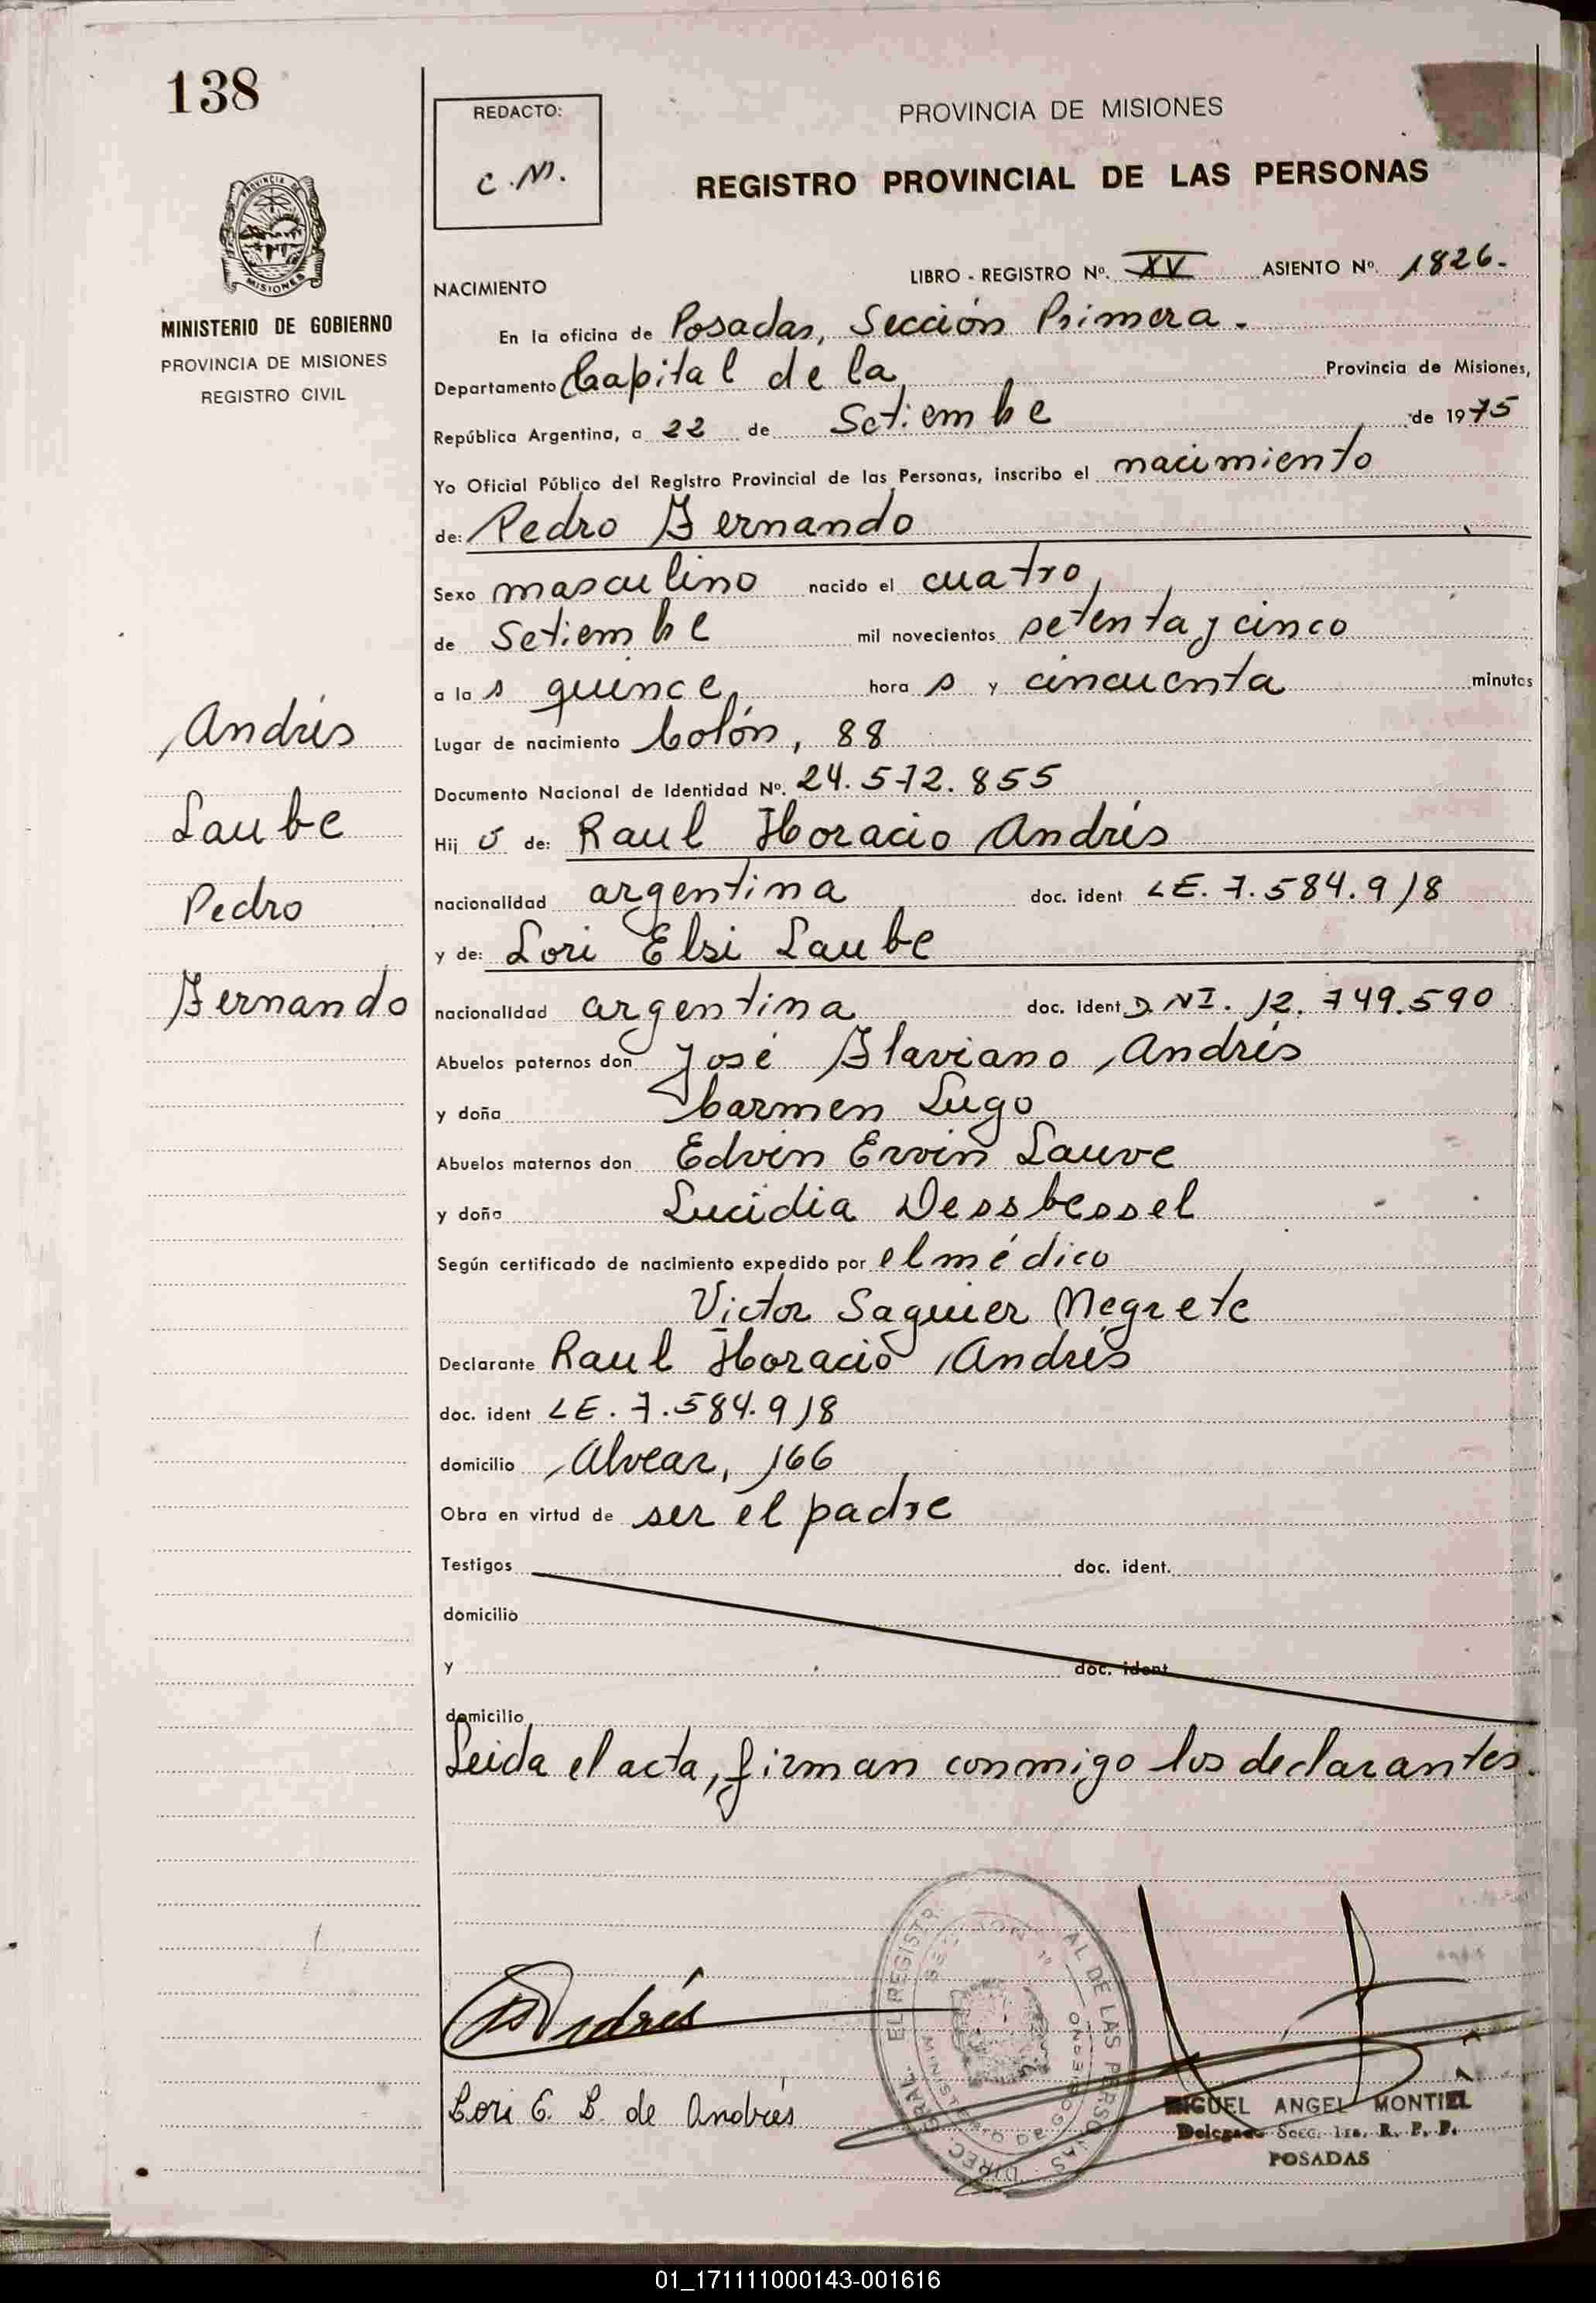 138
REDACTO:
C.M.
PROVINCIA DE MISIONES
REGISTRO PROVINCIAL DE LAS PERSONAS
PROVINCIA DE
MISIONES
MINISTERIO DE GOBIERNO
PROVINCIA DE MISIONES
REGISTRO CIVIL
LIBRO - REGISTRO Nº. XV ASIENTO Nº. 1826.
NACIMIENTO
En la oficina de Posadas, Sección Primera.
Departamento Capital de la Provincia de Misiones,
República Argentina, a 22 de Setiembre de 1975
Yo Oficial Público del Registro Provincial de las Personas, inscribo el nacimiento
de: Pedro Fernando
Sexo masculino nacido el cuatro
de Setiembre mil novecientos setenta y cinco
a la s quince hora s y cincuenta minutos
Lugar de nacimiento Colón, 88
Documento Nacional de Identidad Nº. 24.572.855
Hij o de: Raul Horacio Andrés
nacionalidad argentina doc. ident LE. 7.584.918
y de: Lori Elsi Laube
nacionalidad argentina doc. ident D.NI. 12.749.590
Abuelos paternos don José Flaviano Andrés
y doña Carmen Lugo
Abuelos maternos don Edvin Ervin Lauve
y doña Lucidia Dessbessel
Según certificado de nacimiento expedido por el médico
Victor Saguier Negrete
Declarante Raul Horacio Andrés
doc. ident LE. 7.584.918
domicilio Alvear, 166
Obra en virtud de ser el padre
Testigos doc. ident.
domicilio
y doc. ident
domicilio
Leida el acta, firman conmigo los declarantes.
Andrés
Laube
Pedro
Fernando
Andrés
Lori E. L. de Andrés
DIREC. GRAL. EL REGISTR AL DE LAS PERSONAS
SECCION 1º
MINISTERIO DE GOBIERNO
MIGUEL ANGEL MONTIEL
Delegado Secc. 1ra. R. P. P.
POSADAS
01_171111000143-001616